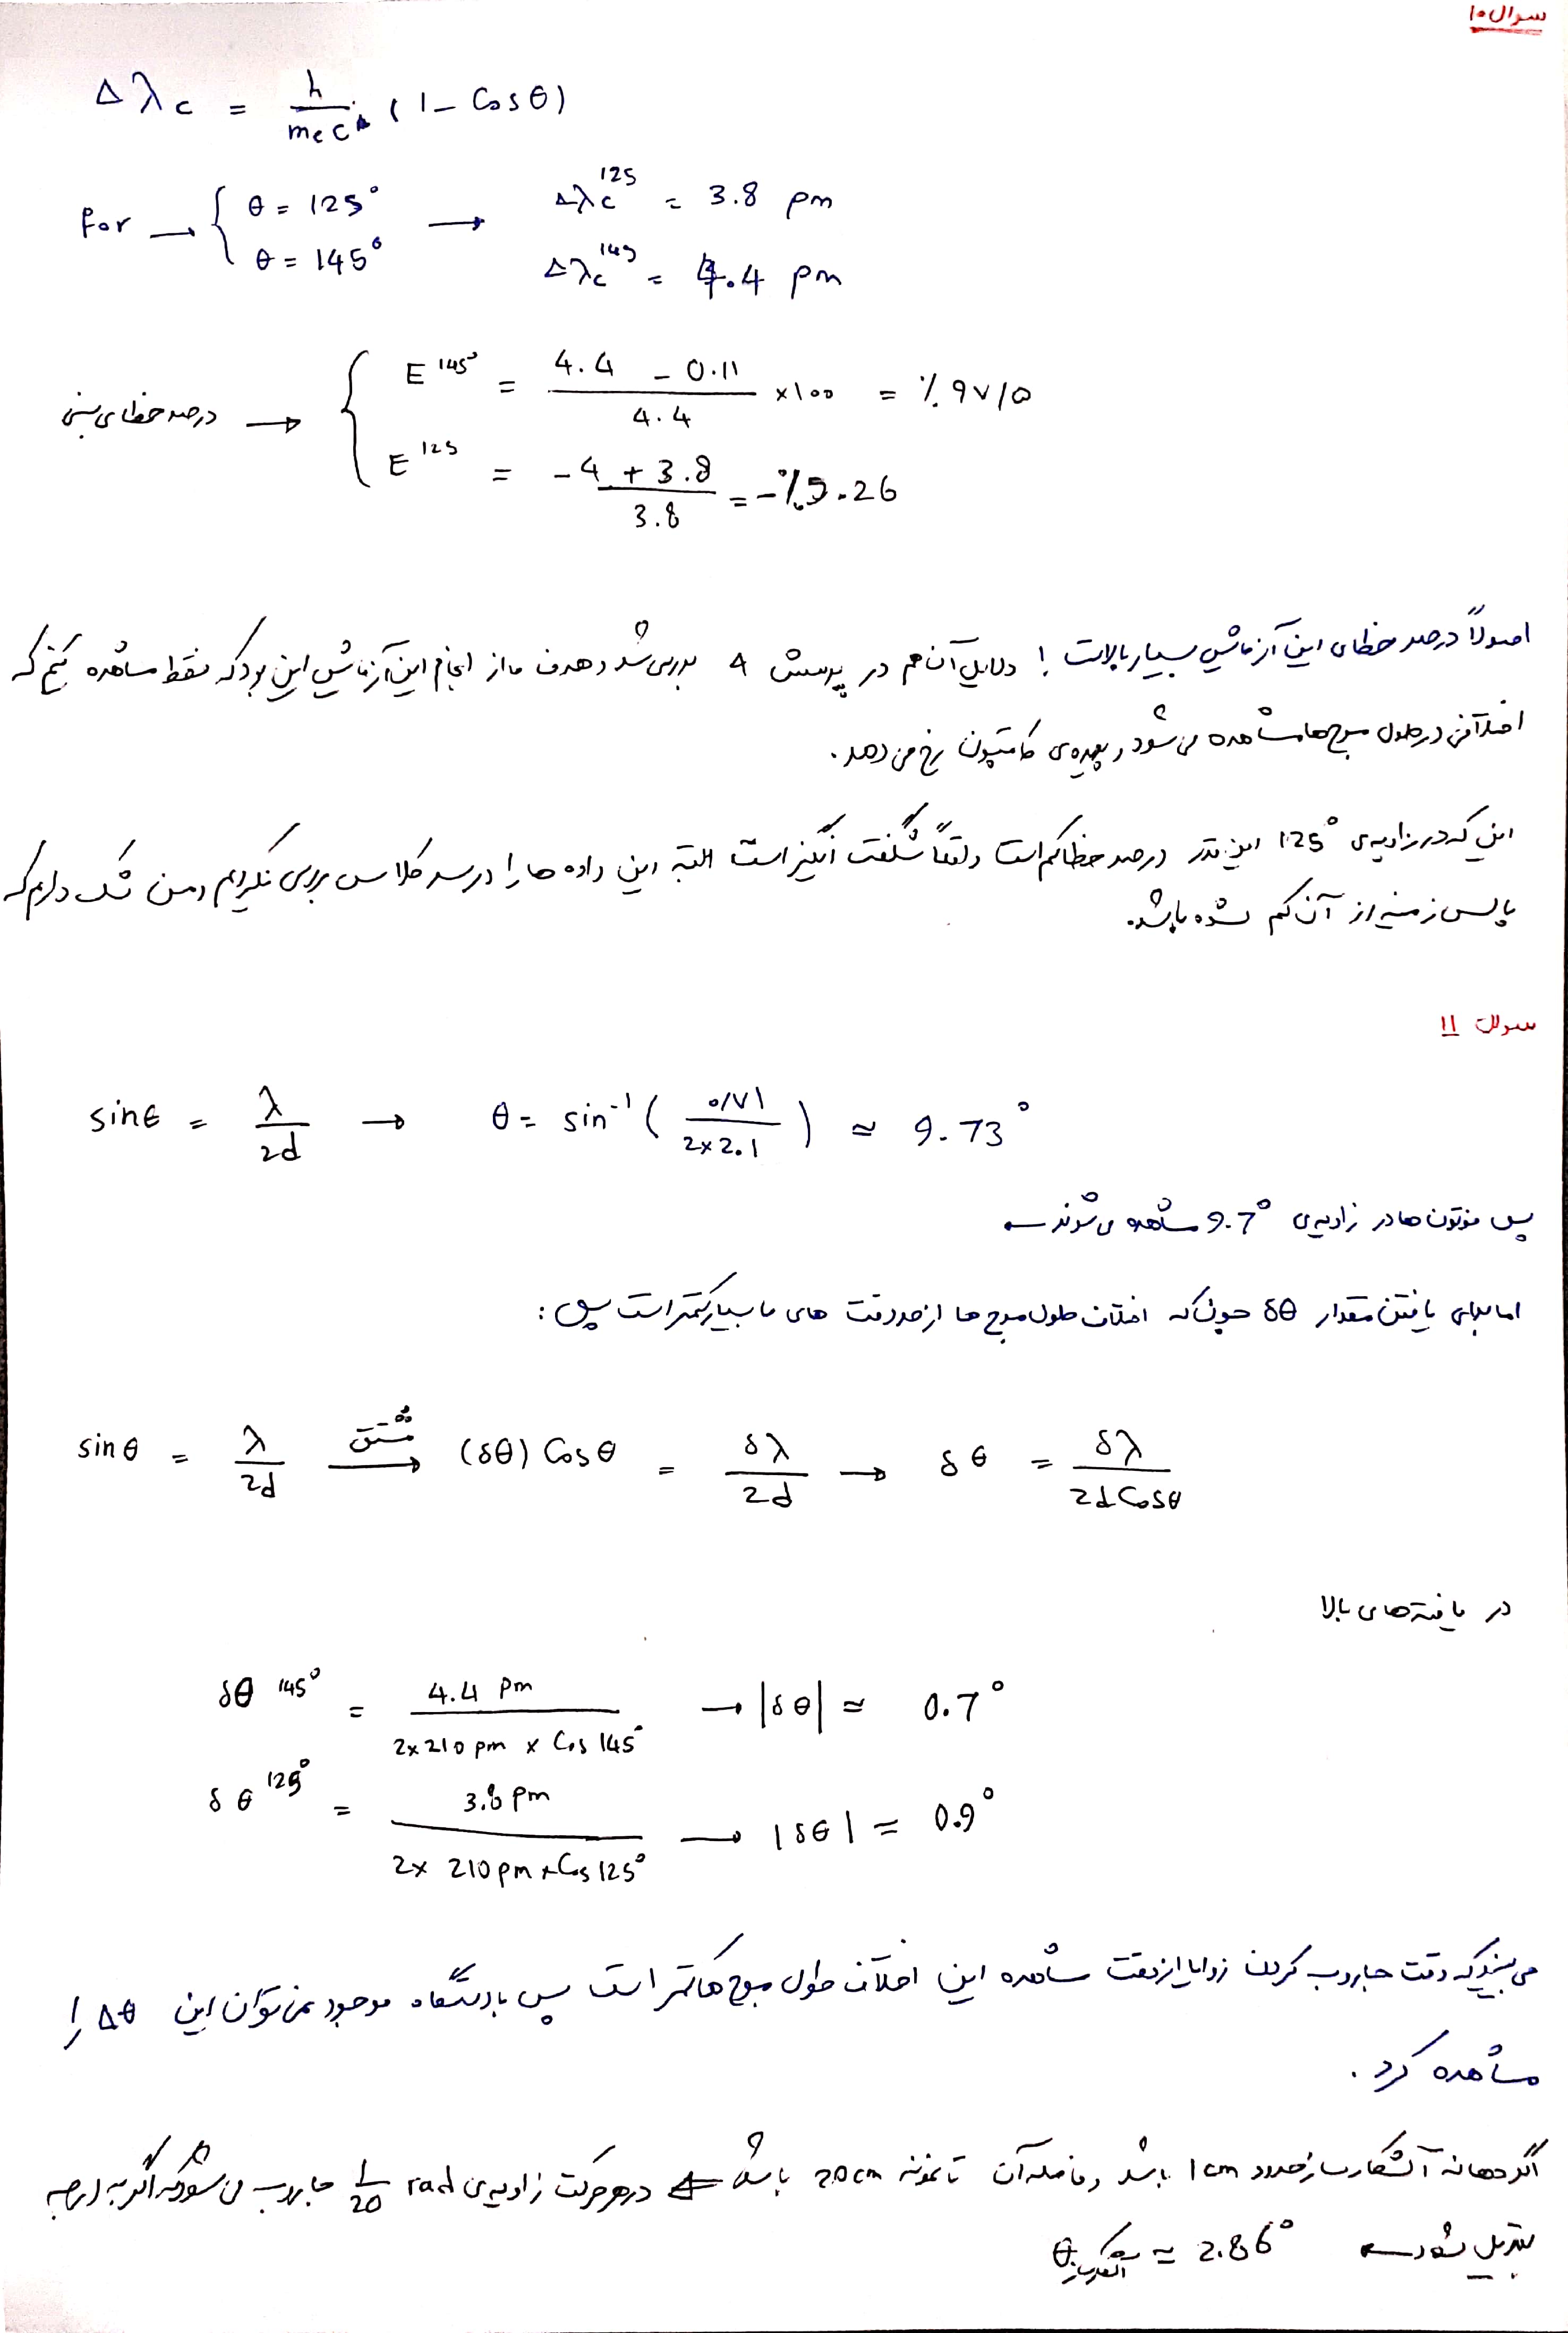 سوال ۱۰
Δλc = h / mec (1 - Cosθ)
For → { θ = 125° → Δλc^125 = 3.8 pm
θ = 145° Δλc^145 = 4.4 pm
درصد خطای نسبی → { E^145° = (4.4 - 0.11) / 4.4 ×100 = ٪ ۹۷/۵
E^125 = (-4 + 3.8) / 3.8 = -٪5.26
اصولاً درصد خطای این آزمایش بسیار بالاست ! دلایل آن هم در پرسش ۹ بررسی شد و هدف ما از انجام این آزمایش این بود که فقط مشاهده کنیم که
اختلافی در طول موج ها مشاهده می شود و پدیده ی کامپتون رخ می دهد.
این که در زاویه ی 125° این قدر درصد خطا کم است واقعاً شگفت انگیز است البته این داده ها را در سر کلاس بررسی نکردیم و من شک دارم که
پالس زمینه از آن کم شده باشد.
سوال 11
sinθ = λ / 2d → θ = sin⁻¹ ( ۰/۷۱ / 2×2.1 ) ≈ 9.73°
پس فوتون ها در زاویه ی 9.7° مشاهده می شوند
اما برای یافتن مقدار δθ چون که اختلاف طول موج ها از حد دقت های ما بسیار کمتر است پس :
sinθ = λ / 2d مشتق → (δθ) Cosθ = δλ / 2d → δθ = δλ / 2d Cosθ
در یافته های بالا
δθ^145° = 4.4 pm / 2×210 pm × Cos 145° → |δθ| ≈ 0.7°
δθ^125° = 3.8 pm / 2× 210 pm × Cos 125° → |δθ| ≈ 0.9°
می بینیم که دقت جاروب کردن زوایا از دقت مشاهده این اختلاف طول موج ها کمتر است پس با دستگاه موجود نمی توان این Δθ را
مشاهده کرد .
اگر دهانه آشکارساز حدود 1 cm باشد و فاصله آن تا نمونه 20 cm باشد در هر حرکت زاویه ی 1/20 rad جاروب می شود که اگر به درجه
تبدیل شود θ آشکارساز ≈ 2.86°